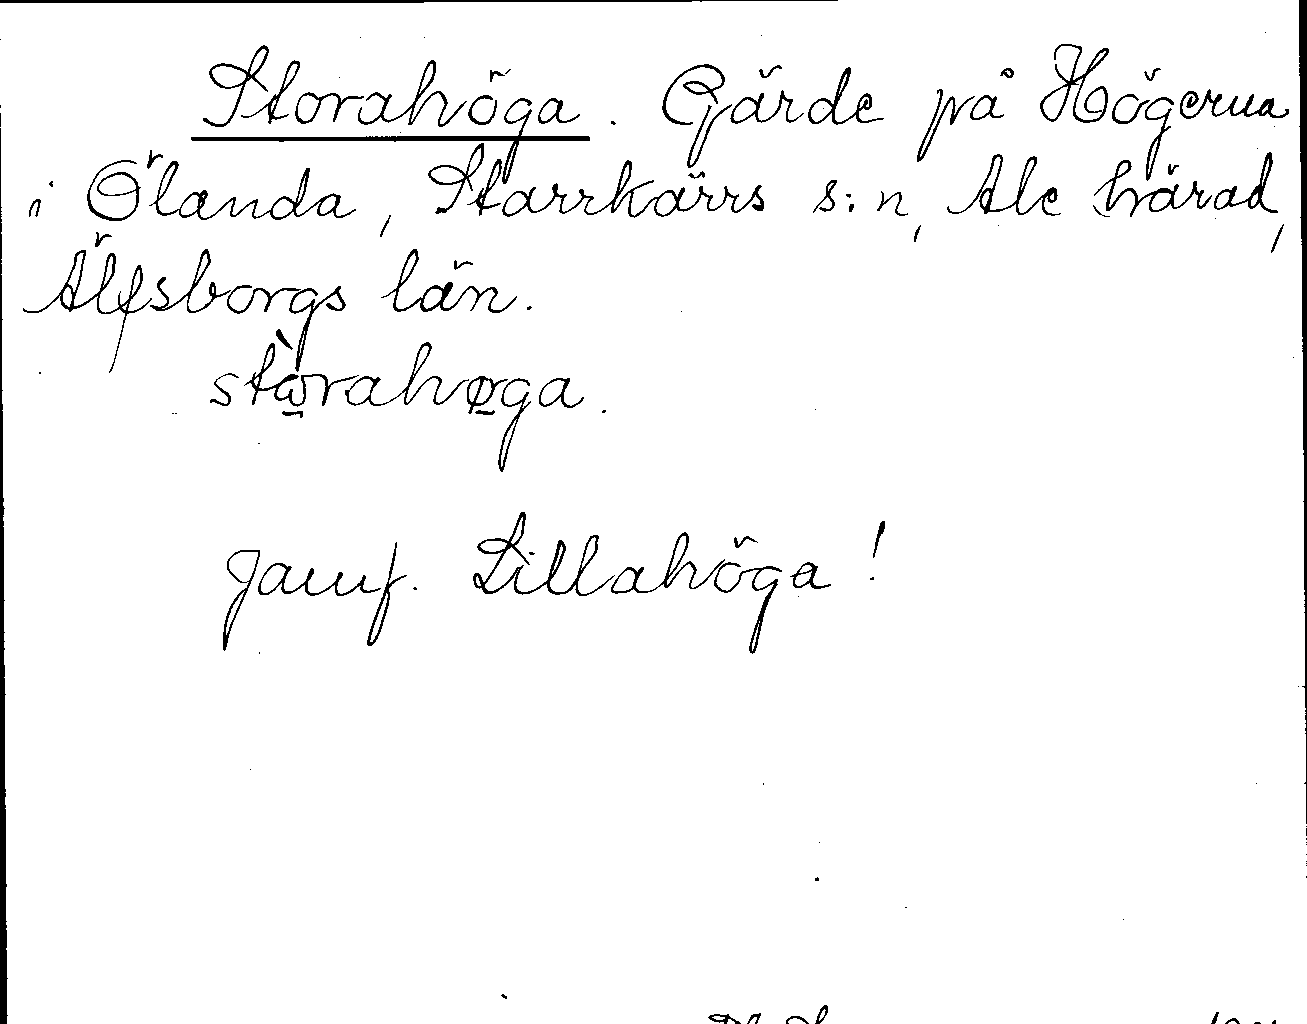 Storahöga. Gärde på Högerna
i Ölanda, Starrkärrs s:n, Ale härad,
Älfsborgs län.
stὼrahøga.
Jämf. Lillahöga!